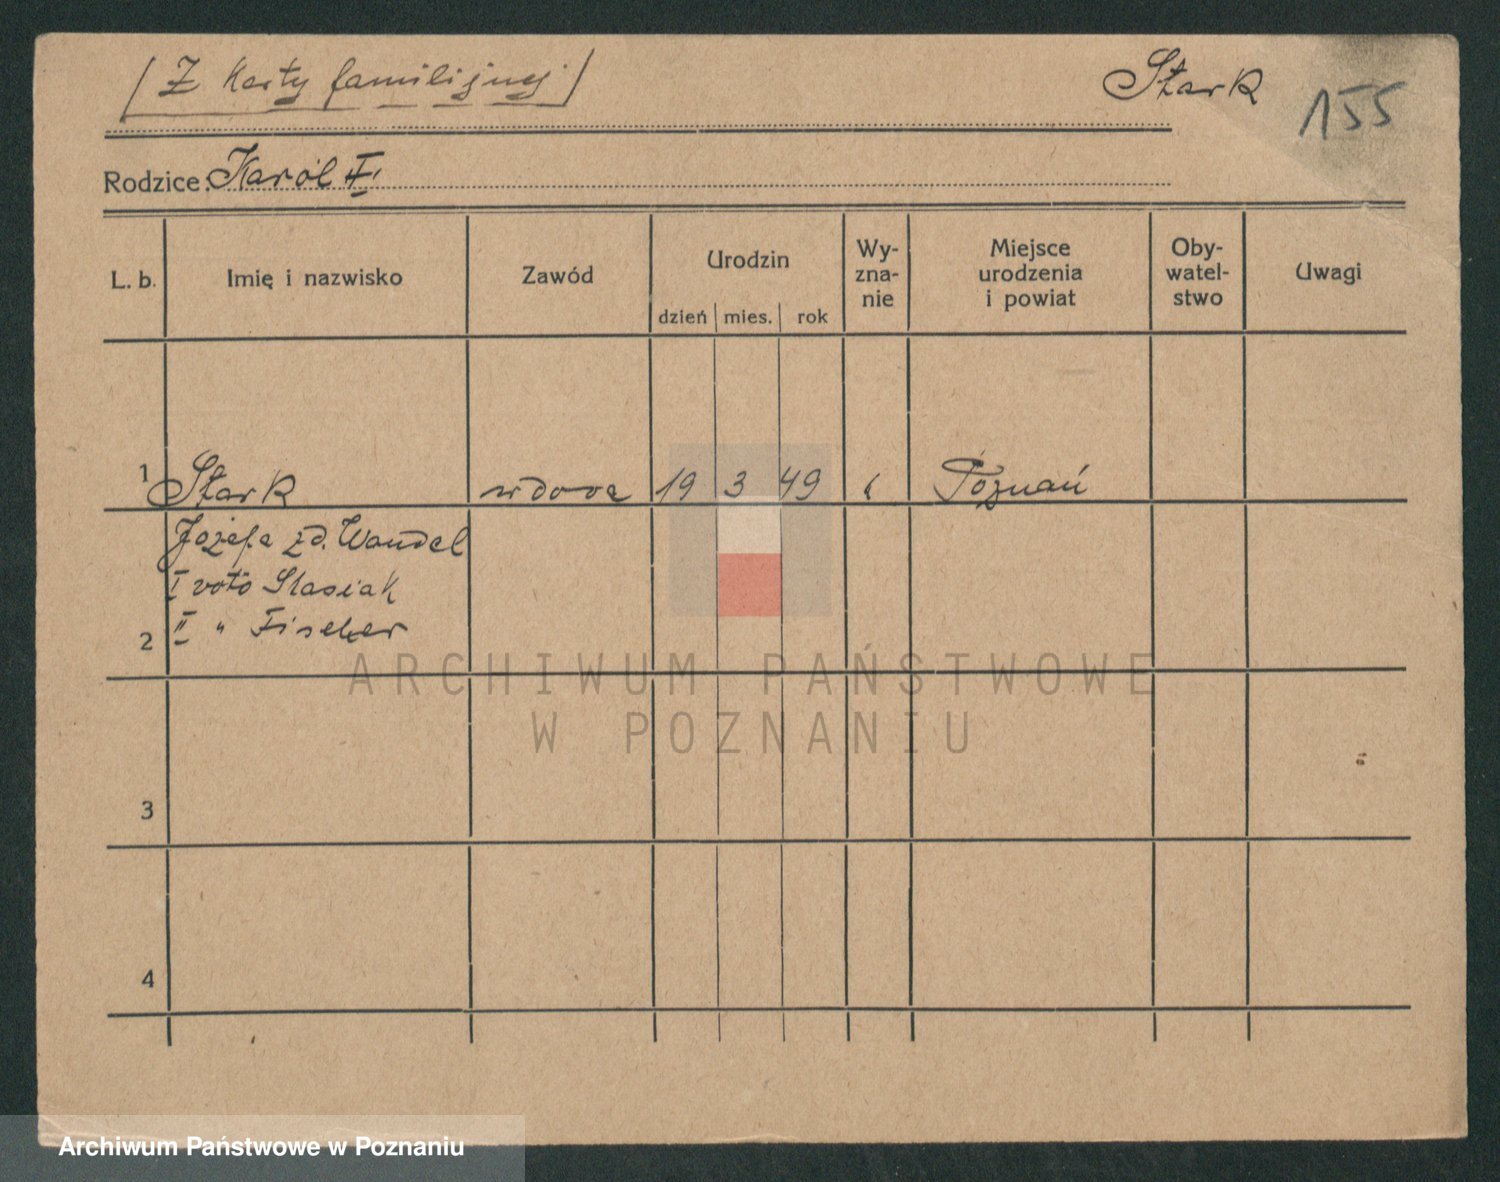 /Z Karty familijnej/ Stark 155
Rodzice: Karól II
L. b. Imię i nazwisko Zawód Urodzin dzień mies. rok Wy-zna-nie Miejsce urodzenia i powiat Oby-watel-stwo Uwagi
1 Stark wdowa 19 3 49 Poznań
Józefa zd. Wandel
I voto Stasiak
2 II " Fischer
3
4
ARCHIWUM PAŃSTWOWE
W POZNANIU
Archiwum Państwowe w Poznaniu